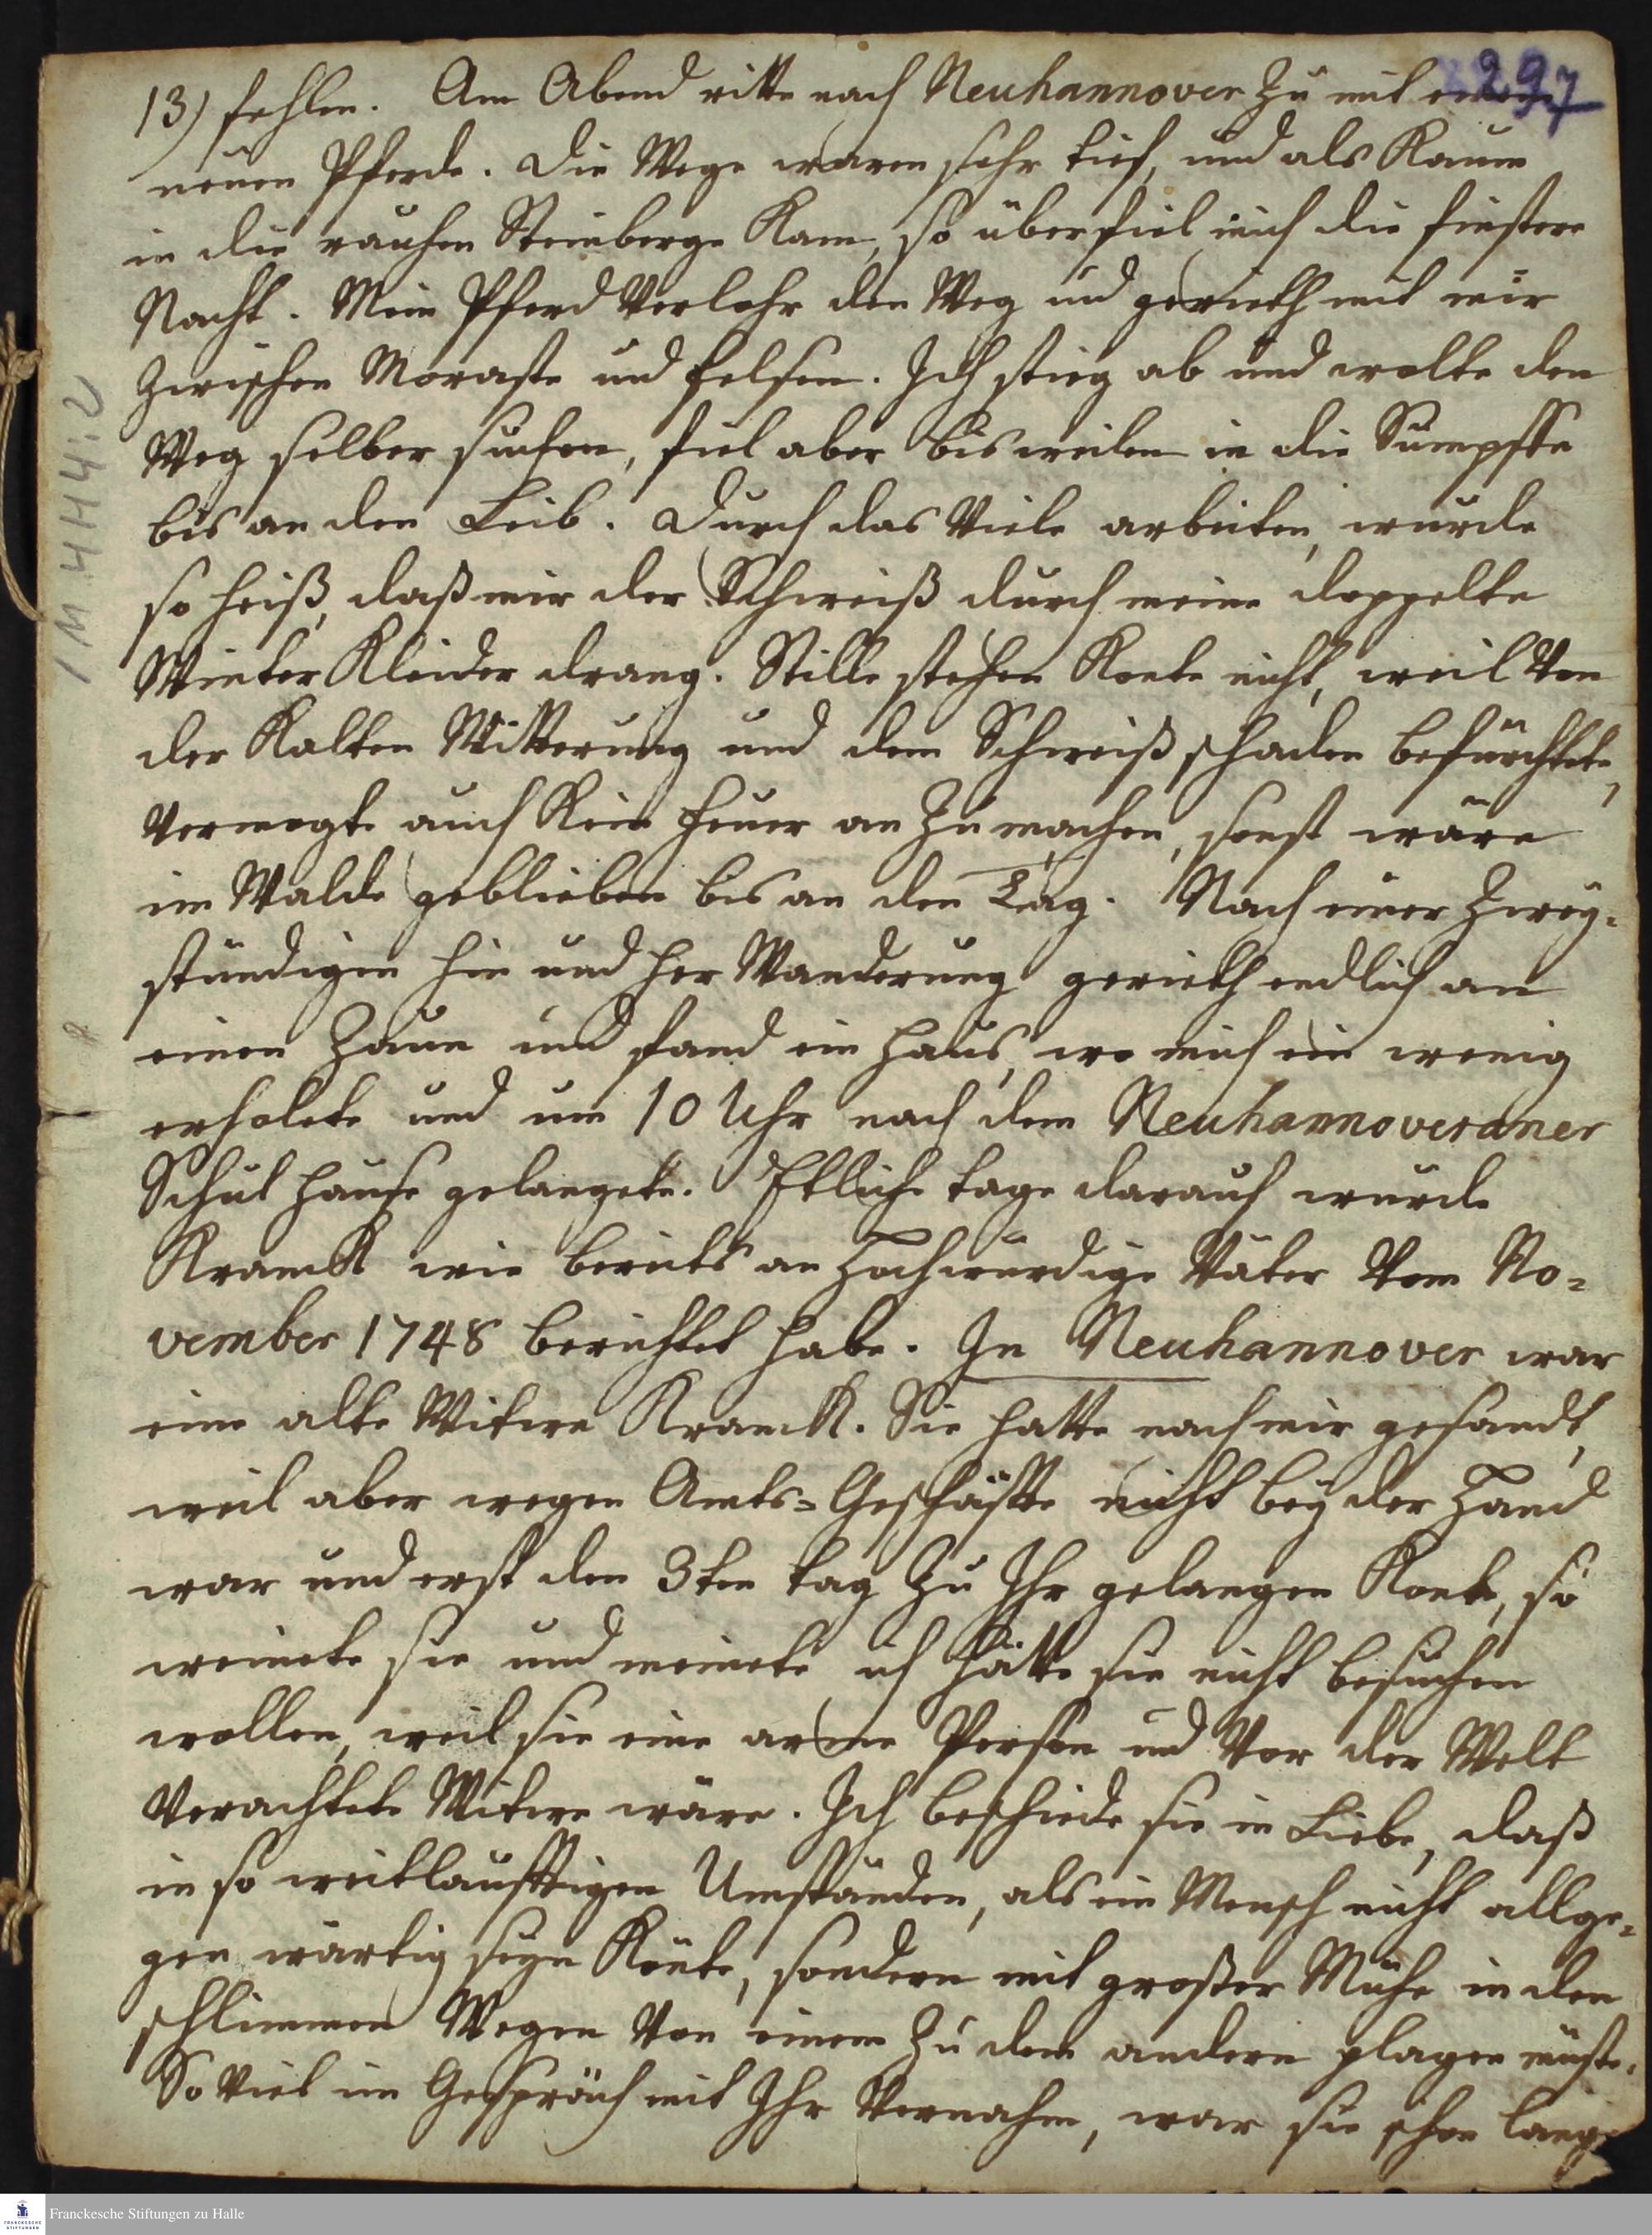 297
13) fehlen. Am Abend ritte nach Neuhannover zu mit einem
neuen Pferde. Die Wege waren sehr tief, und als kaum
in die rauhen Steinberge kam, so überfiel mich die finstere
Nacht. Mein Pferd verlohr den Weg und gerieth mit mir
zwischen Moraste und Felsen. Ich stieg ab und wolte den
Weg selber suchen, fiel aber bisweilen in die Sumpffe
bis an den Leib. Durch das viele arbeiten, wurde
so heiß, daß mir der Schweiß durch meine doppelte
Winter Kleider drang. Stille stehen konte nicht, weil von
der kalten Witterung und dem Schweiß schaden befürchtete,
vermogte auch kein Feuer an zu machen, sonst wäre
im Walde geblieben bis an den Tag. Nach einer zwey-
stündigen hin und her Wanderung gerieth endlich an
einen Zaun und fand ein Haus, wo mich ein wenig
erholete und um 10 Uhr nach dem Neuhannoveraner
Schul Hause gelangete. Etliche tage darauf wurde
Kranck wie bereits an Hochwürdige Väter vom No=
vember 1748 berichtet habe. In Neuhannover war
eine alte Witwe Kranck. Sie hatte nach mir gesandt,
weil aber wegen Amts=Geschäffte nicht bey der Hand
war und erst den 3ten tag zu Ihr gelangen konte, so
weinete sie und meinete ich hätte sie nicht besuchen
wollen, weil sie eine arme Person und vor der Welt
verachtete Witwe wäre. Ich beschiede sie in Liebe, daß
in so weitläufftigen Umständen, als ein Mensch nicht allge=
gen wärtig seyn könte, sondern mit großer Mühe in den
schlimmen Wegen von einem zu dem andern plagen müste.
So viel im Gespräch mit Ihr vernahm, war sie schon lange
1 M 4 H 4:2
FRANCKESCHE STIFTUNGEN
Franckesche Stiftungen zu Halle